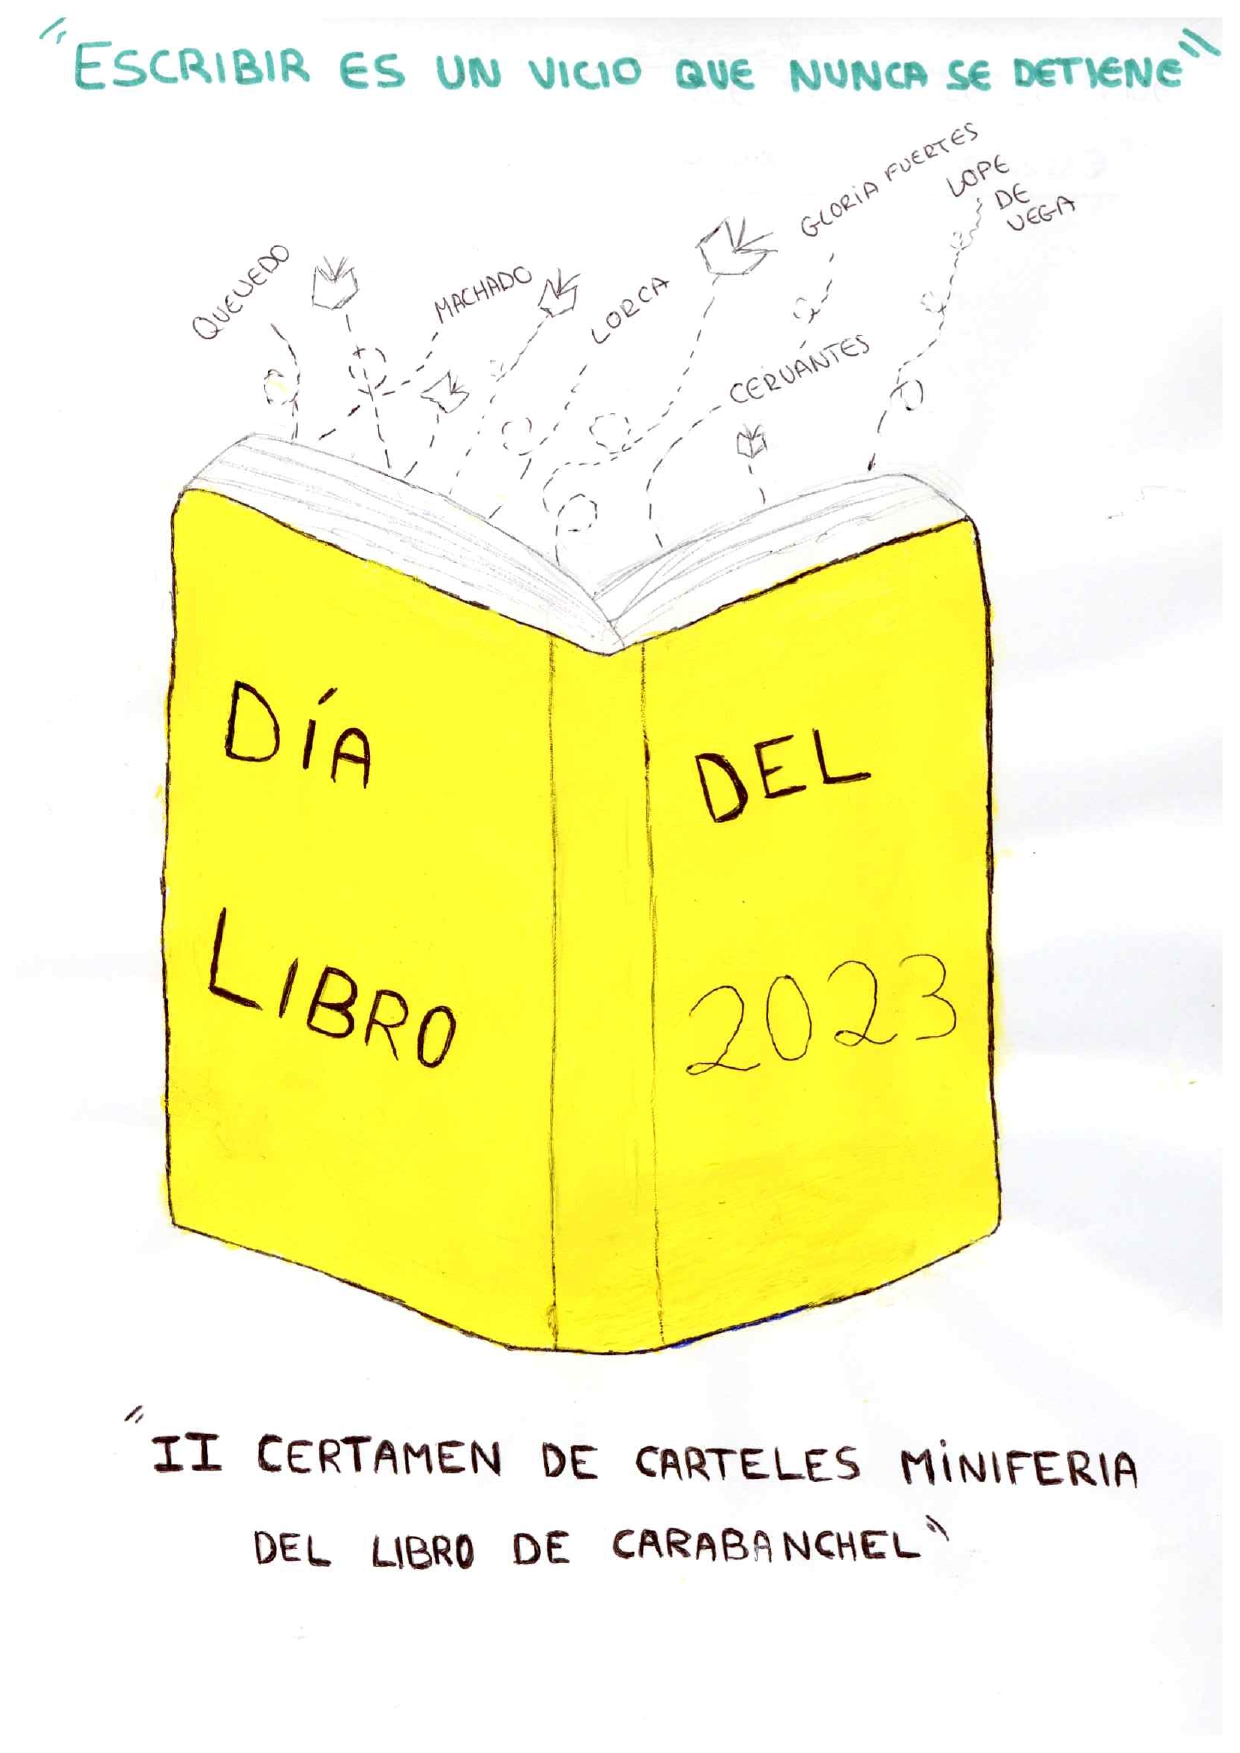 "ESCRIBIR ES UN VICIO QUE NUNCA SE DETIENE"
QUEVEDO
MACHADO
LORCA
GLORIA FUERTES
LOPE
DE
VEGA
CERVANTES
DÍA
DEL
LIBRO
2023
"II CERTAMEN DE CARTELES MINIFERIA
DEL LIBRO DE CARABANCHEL"